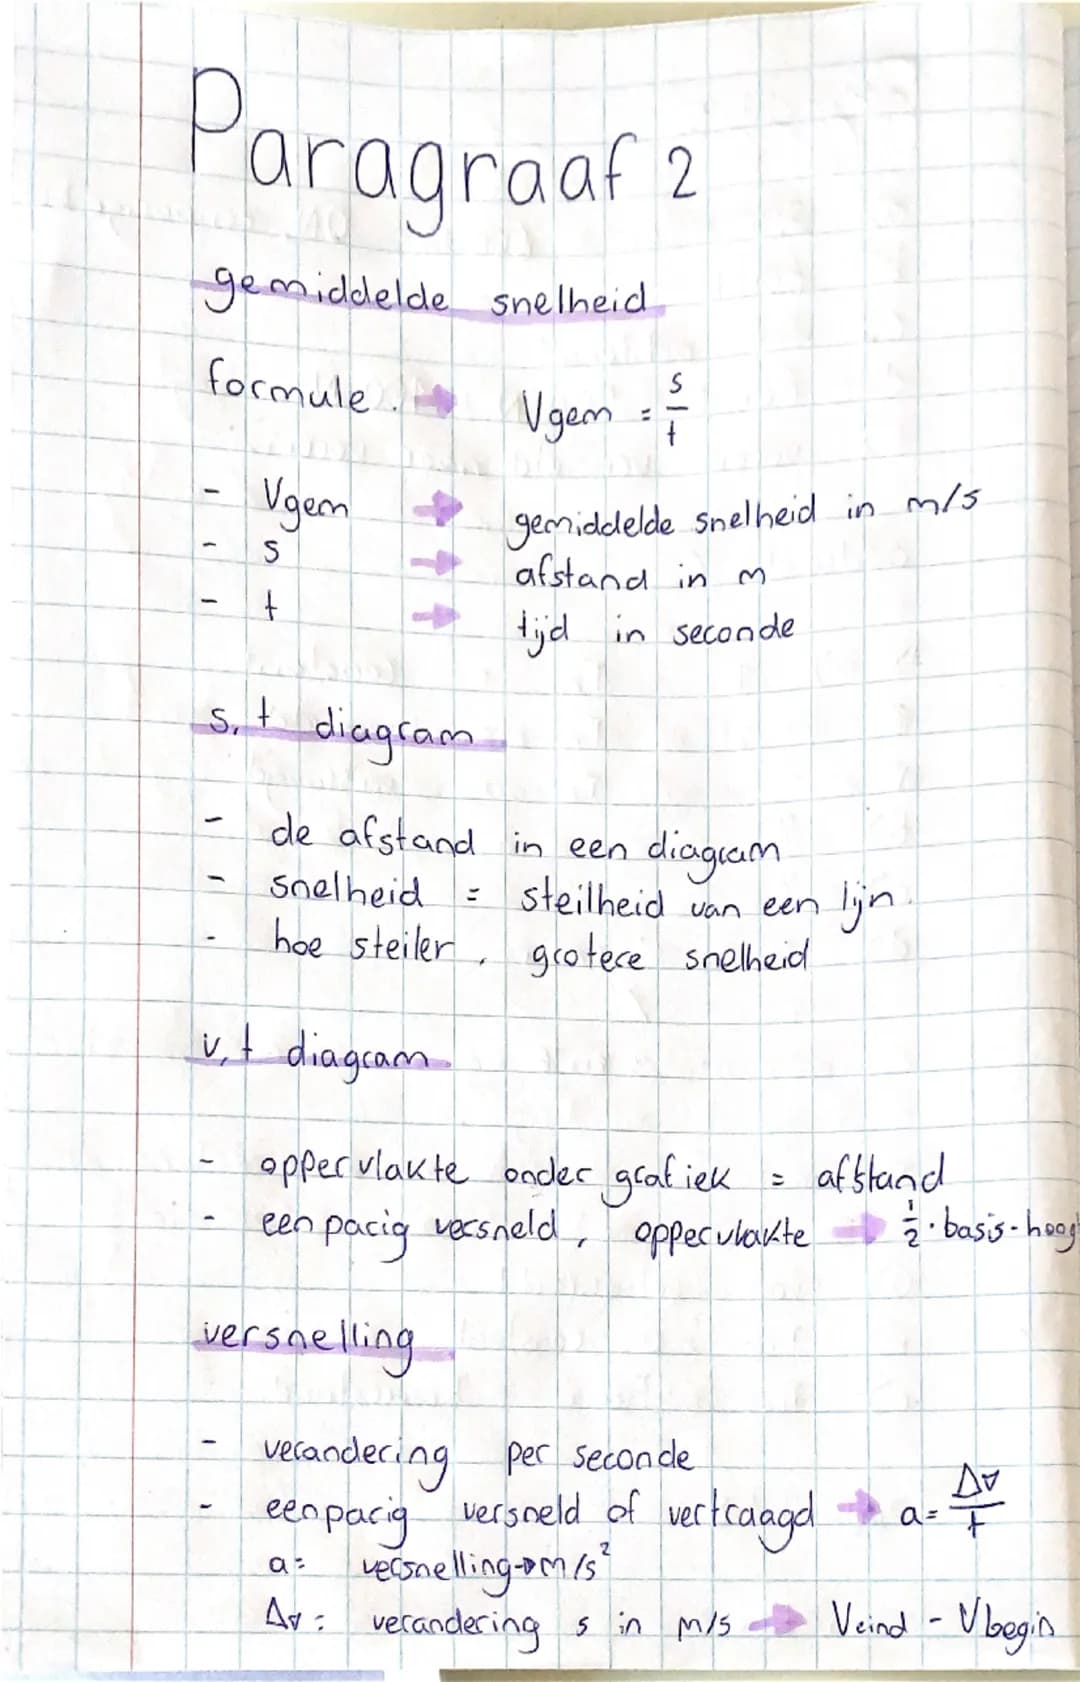 Paragraaf 2
gemiddelde snelheid
formule. → Vgem = s/t
- Vgem → gemiddelde snelheid in m/s
- s → afstand in m
- t → tijd in seconde
s,t diagram
- de afstand in een diagram
- snelheid = steilheid van een lijn.
- hoe steiler, grotere snelheid
v,t diagram
- oppervlakte onder grafiek = afstand
- eenparig versneld, oppervlakte → 1/2 · basis-hoog
versnelling
- verandering per seconde
- eenparig versneld of vertraagd → a = Δv/t
a = versnelling → m/s²
Δv = verandering s in m/s → Veind - Vbegin